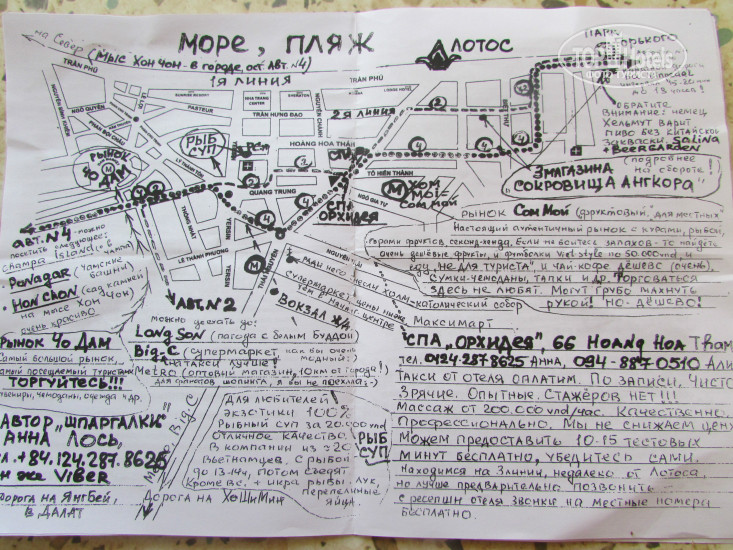 на Север
МОРЕ, ПЛЯЖ
(МЫС ХОН ЧОН - В ГОРОДЕ, ОСТ. АВТ. №4)
ЛОТОС
ПАРК
ГОРЬКОГО
TRẦN PHÚ
1Я ЛИНИЯ
TRẦN PHÚ
NGÔ QUYỀN
LÊ LỢI
PASTEUR
NHA TRANG CENTER
SHERATON
NGUYỄN CHÁNH
2Я ЛИНИЯ
2
PHAN BỘI CHÂU
TRẦN HƯNG ĐẠO
HOÀNG HOA THÁM
ОБРАТИТЕ
ВНИМАНИЕ: НЕМЕЦ
ХЕЛЬМУТ ВАРИТ
ПИВО БЕЗ КИТАЙСКОЙ
ЗАКВАСКИ SALINA
BEERGARDEN
РЫБ
СУП
РЫНОК
ЧО ДАМ
М
LÝ THÁNH TÔN
QUANG TRUNG
СПА
TÔ HIẾN THÀNH
М
ХОМ
МОИ=
СОМ МОЙ
NGÔ GIA TỰ
СПА
ОРХИДЕЯ
3 МАГАЗИНА
"СОКРОВИЩА АНГКОРА"
(ПОДРОБНЕЕ
НА ОБОРОТЕ!)
АВТ. №4
МОЖНО
ПОСЕТИТЬ СЛЕДУЮЩЕЕ:
Champa Island
PoNagar (ЧАМСКИЕ БАШНИ)
HON CHON (САД КАМНЕЙ
НА МЫСЕ ХОН ЧОН)
ОЧЕНЬ КРАСИВО
THỐNG NHẤT
YERSIN
LÊ THÀNH PHƯƠNG
YERSIN
THÁI NGUYÊN
РЫНОК СОМ МОЙ (ФРУКТОВЫЙ, ДЛЯ МЕСТНЫХ)
НАСТОЯЩИЙ АУТЕНТИЧНЫЙ РЫНОК С КУРАМИ, РЫБОЙ,
ГОРАМИ ФРУКТОВ, СЕКОНД-ХЕНДА. ЕСЛИ НЕ БОИТЕСЬ ЗАПАХОВ - ТО НАЙДЁТЕ
ОЧЕНЬ ДЕШЁВЫЕ ФРУКТЫ, И ФУТБОЛКИ Viet style ПО 50.000 vnd, И
ЕДУ "НЕ ДЛЯ ТУРИСТА", И ЧАЙ-КОФЕ ДЁШЕВО (ОЧЕНЬ),
СУМКИ-ЧЕМОДАНЫ, ТАПКИ И ДР. ТОРГОВАТЬСЯ
ЗДЕСЬ НЕ ЛЮБЯТ. МОГУТ ГРУБО МАХНУТЬ
РУКОЙ! НО - ДЁШЕВО!
КАТОЛИЧЕСКИЙ СОБОР
МАКСИМАРТ
АВТ. №2
МОЖНО УЕХАТЬ ДО:
LONG SON (ПАГОДА С БЕЛЫМ БУДДОЙ)
BIG-C (СУПЕРМАРКЕТ
НА ТАКСИ ЛУЧШЕ!
Metro (ОПТОВЫЙ МАГАЗИН, 10 КМ ОТ ГОРОДА!)
ВОКЗАЛ Ж/Д
РЫНОК ЧО ДАМ
САМЫЙ БОЛЬШОЙ РЫНОК,
САМЫЙ ПОСЕЩАЕМЫЙ ТУРИСТАМИ
ТОРГУЙТЕСЬ!!!
СУВЕНИРЫ, ЧЕМОДАНЫ, ОДЕЖДА И ДР.
АВТОР "ШПАРГАЛКИ"
АННА ЛОСЬ,
тел. +84.124.287.8625
он же VIBER
ДОРОГА НА ЯНГБЕЙ,
В ДАЛАТ
ДОРОГА НА ХОШИМИН
ДЛЯ ЛЮБИТЕЛЕЙ
ЭКЗОТИКИ 100%
РЫБНЫЙ СУП ЗА 20.000 vnd
ОТЛИЧНОЕ КАЧЕСТВО.
В КОМПАНИИ ИЗ ≈20
ВЬЕТНАМЦЕВ. С РЫБОЙ
ДО 13-14ч, ПОТОМ СЪЕДЯТ
КРОМЕ ВС. + ИКРА РЫБЫ, ЛУК,
ПЕРЕПЕЛИНЫЕ
ЯЙЦА.
РЫБ
СУП
СПА "ОРХИДЕЯ", 66 HOANG HOA THAM
тел. 0124.287 8625 АННА, 094-887 0510 АЛИ
ТАКСИ ОТ ОТЕЛЯ ОПЛАТИМ. ПО ЗАПИСИ, ЧИСТО
ЗРЯЧИЕ. ОПЫТНЫЕ. СТАЖЁРОВ НЕТ!!!
МАССАЖ ОТ 200.000 vnd/час. КАЧЕСТВЕННО.
ПРОФЕССИОНАЛЬНО. МЫ НЕ СНИЖАЕМ ЦЕН
МОЖЕМ ПРЕДОСТАВИТЬ 10-15 ТЕСТОВЫХ
МИНУТ БЕСПЛАТНО, УБЕДИТЕСЬ САМИ.
НАХОДИМСЯ НА 3 ЛИНИИ, НЕДАЛЕКО ОТ ЛОТОСА,
НО ЛУЧШЕ ПРЕДВАРИТЕЛЬНО ПОЗВОНИТЬ
С РЕСЕПШН ОТЕЛЯ ЗВОНКИ НА МЕСТНЫЕ НОМЕРА
БЕСПЛАТНО.